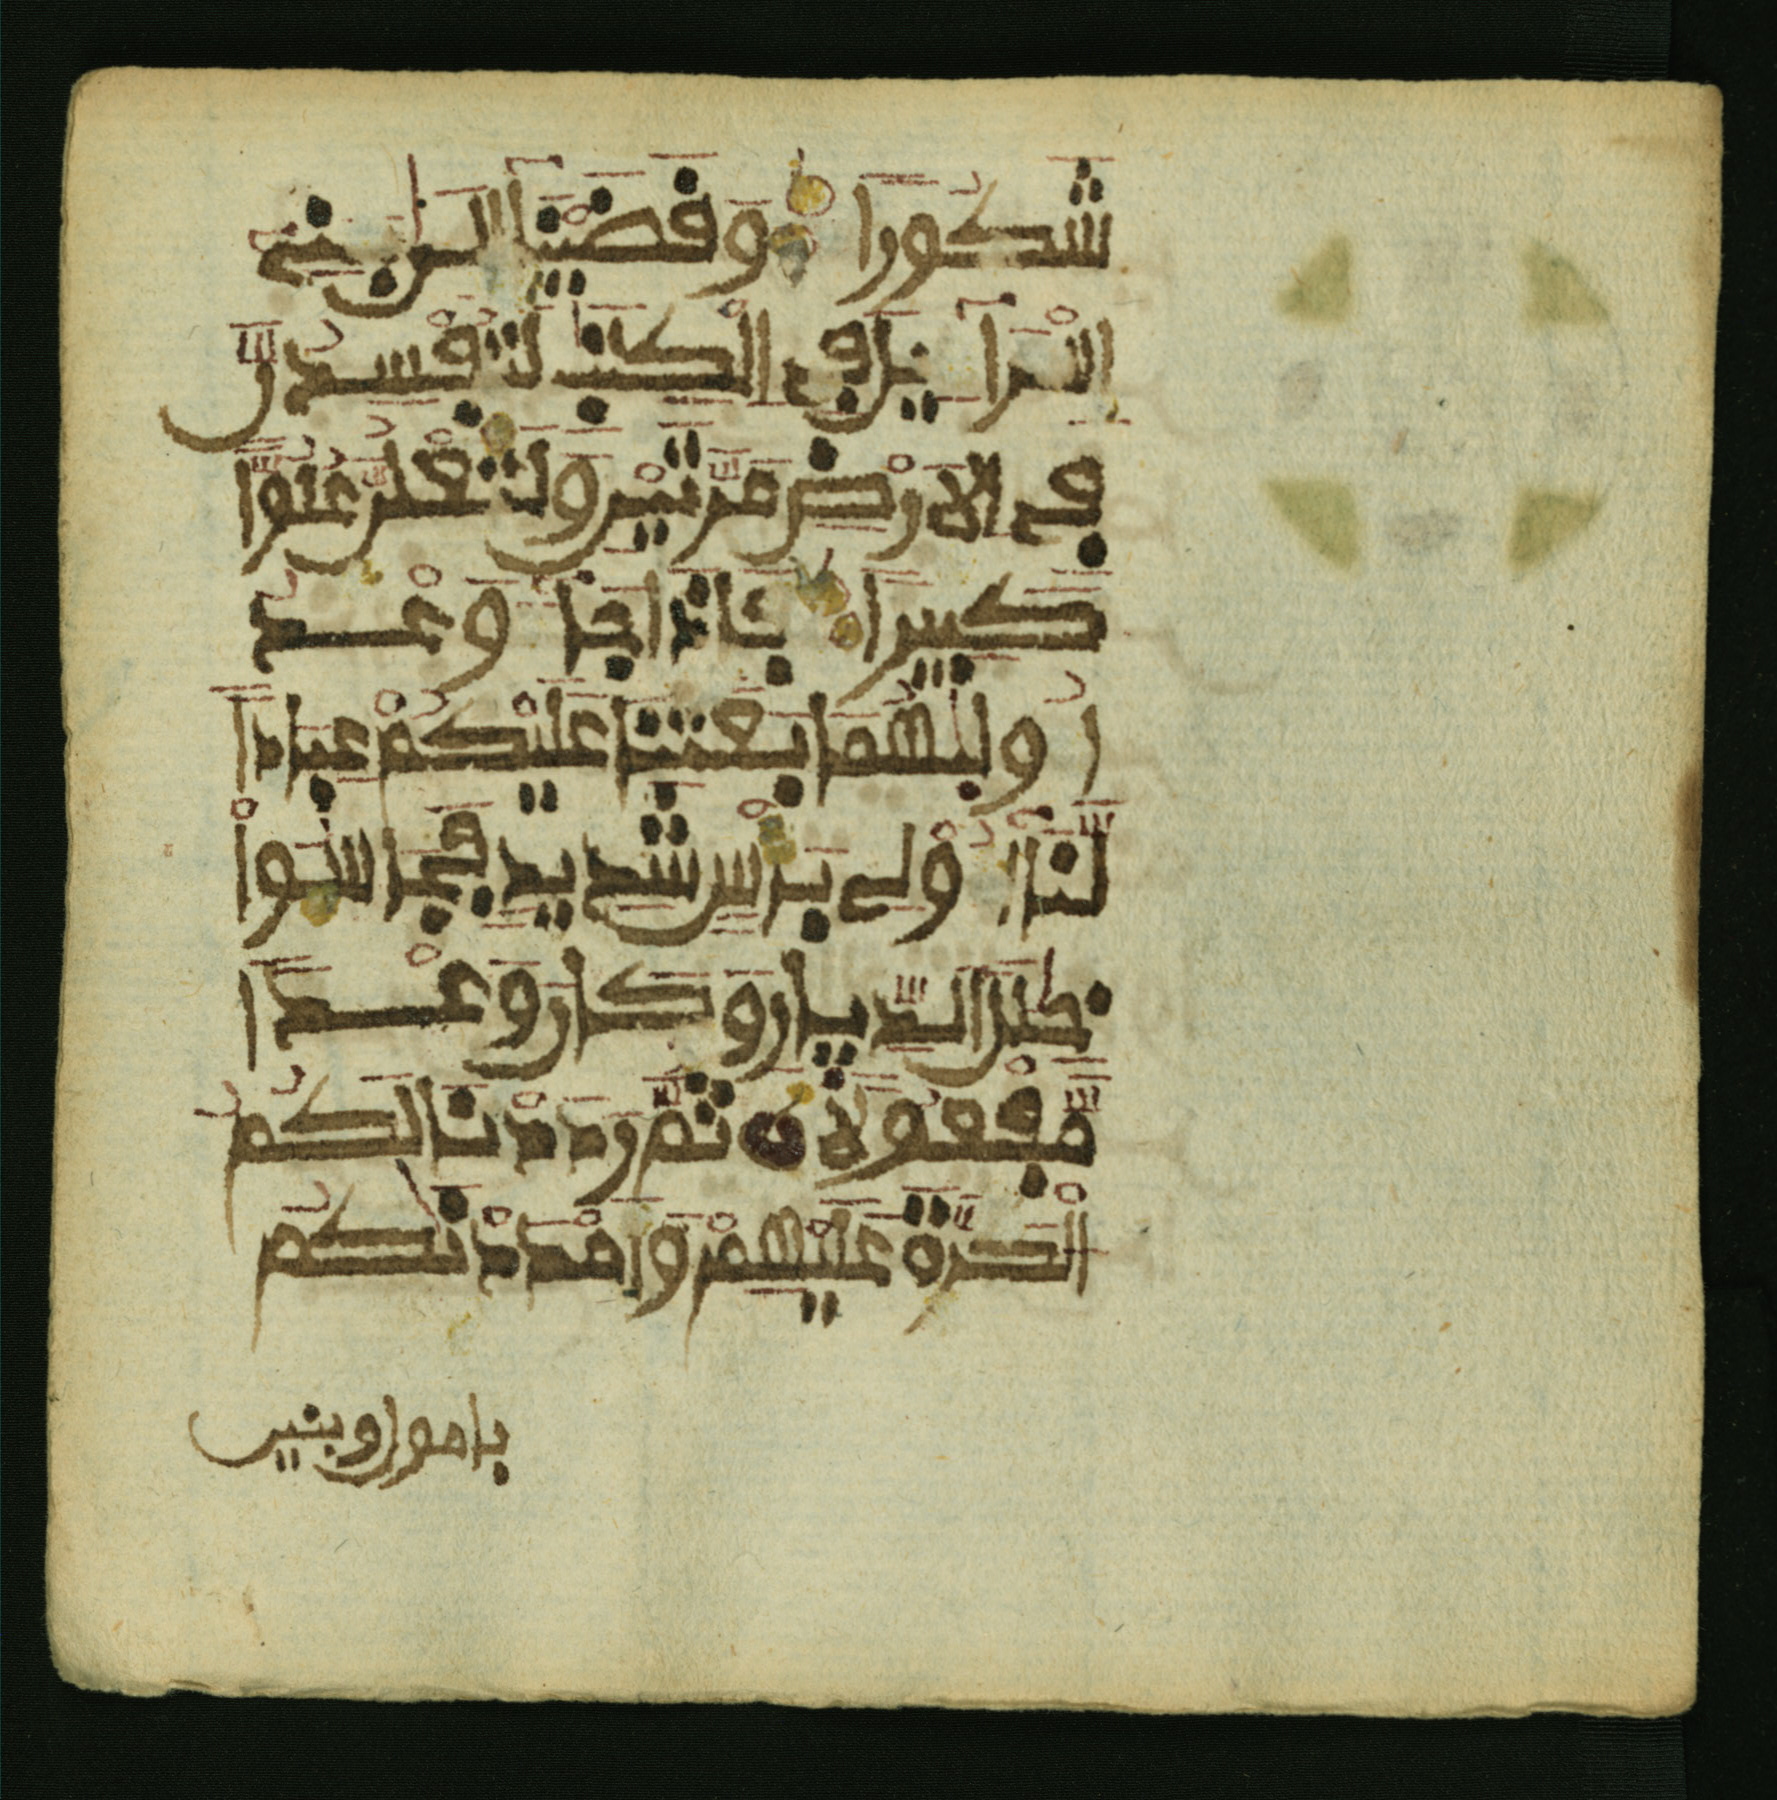 شَكُورًا وَقَضَيْنَآ إِلَىٰ بَنِےٓ
إِسْرَآءِيلَ فِے اِلْكِتَٰبِ لَتُفْسِدُنَّ
فِے اِلَارْضِ مَرَّتَيْنِ وَلَتَعْلُنَّ عُلُوّٗا
كَبِيرٗا فَإِذَا جَآءَ وَعْدُ
أُولَيٰهُمَا بَعَثْنَا عَلَيْكُمْ عِبَادٗا
لَّنَآ أُوْلِے بَأْسٖ شَدِيدٖ فَجَاسُواْ
خِلَٰلَ اَلدِّيَارِ وَكَانَ وَعْدٗا
مَّفْعُولٗا ثُمَّ رَدَدْنَا لَكُمُ
اُلْكَرَّةَ عَلَيْهِمْ وَأَمْدَدْنَٰكُم
بأموال وبنين